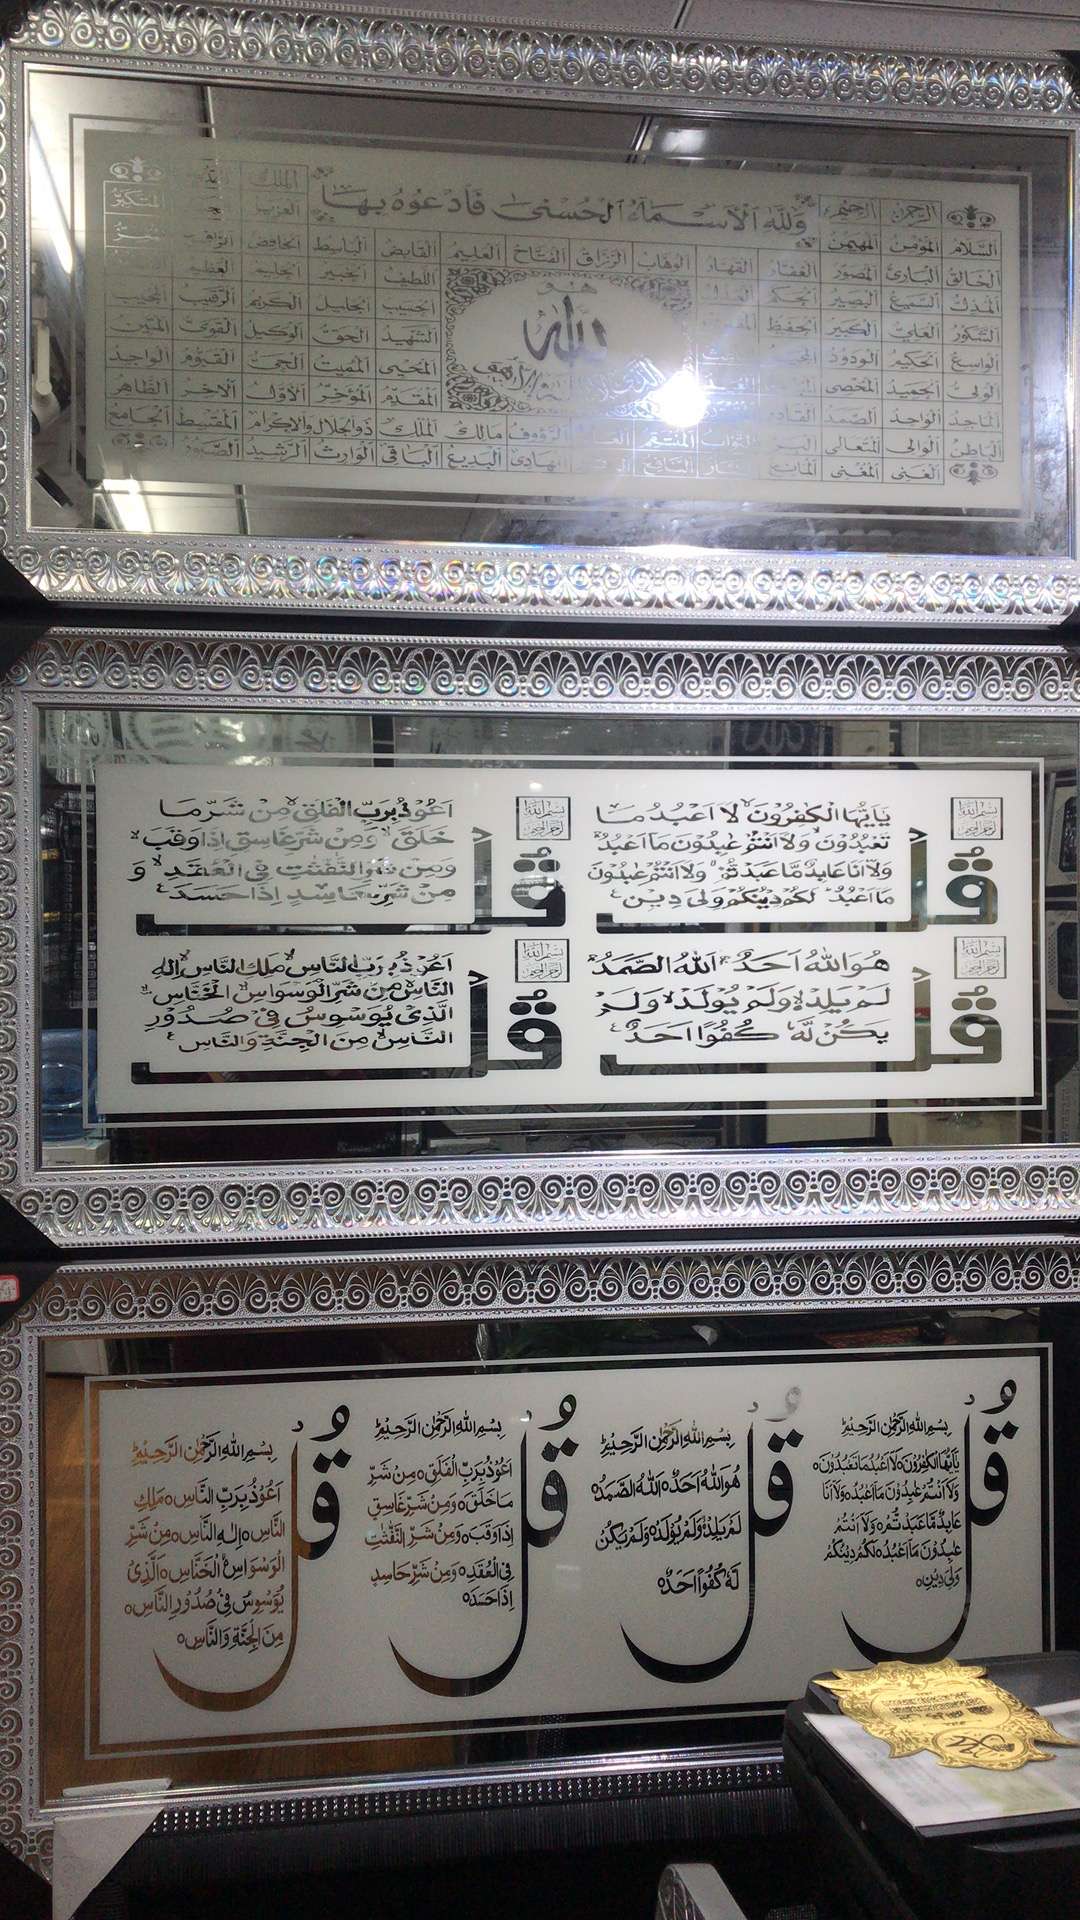 وَلِلّٰهِ الْاَسْمَآءُ الْحُسْنٰى فَادْعُوْهُ بِهَا
الرحمن الرحيم الملك
السلام المؤمن المهيمن العزيز المتكبر
الخالق البارئ المصور الغفار القهار الوهاب الرزاق الفتاح العليم القابض الباسط الخافض الرافع
المذل السميع البصير الحكم اللطيف الخبير الحليم العظيم
الشكور العلي الكبير الحفيظ الحسيب الجليل الكريم الرقيب المجيب
الواسع الحكيم الودود الشهيد الحق الوكيل القوي المتين
الولي الحميد المحصي المحيي المميت الحي القيوم الواجد
الماجد الواحد الصمد القادر المقدم المؤخر الاول الاخر الظاهر
الباطن الوالي المتعالي البر التواب المنتقم الرؤوف مالك الملك ذوالجلال والاكرام المقسط الجامع
الغني المغني المانع النافع الهادي البديع الباقي الوارث الرشيد الصبور
هو
الله
بسم الله الرحمن الرحيم
قُلْ
يٰٓاَيُّهَا الْكٰفِرُوْنَ لَا اَعْبُدُ مَا
تَعْبُدُوْنَ وَلَا اَنْتُمْ عٰبِدُوْنَ مَا اَعْبُدُ
وَلَا اَنَا عَابِدٌ مَّا عَبَدْتُّمْ وَلَا اَنْتُمْ عٰبِدُوْنَ
مَا اَعْبُدُ لَكُمْ دِيْنُكُمْ وَلِىَ دِيْنِ
بسم الله الرحمن الرحيم
قُلْ
اَعُوْذُ بِرَبِّ الْفَلَقِ مِنْ شَرِّ مَا
خَلَقَ وَمِنْ شَرِّ غَاسِقٍ اِذَا وَقَبَ
وَمِنْ شَرِّ النَّفّٰثٰتِ فِى الْعُقَدِ وَ
مِنْ شَرِّ حَاسِدٍ اِذَا حَسَدَ
بسم الله الرحمن الرحيم
قُلْ
هُوَ اللّٰهُ اَحَدٌ اَللّٰهُ الصَّمَدُ
لَمْ يَلِدْ وَلَمْ يُوْلَدْ وَلَمْ
يَكُنْ لَّهٗ كُفُوًا اَحَدٌ
بسم الله الرحمن الرحيم
قُلْ
اَعُوْذُ بِرَبِّ النَّاسِ مَلِكِ النَّاسِ اِلٰهِ
النَّاسِ مِنْ شَرِّ الْوَسْوَاسِ الْخَنَّاسِ
الَّذِىْ يُوَسْوِسُ فِىْ صُدُوْرِ
النَّاسِ مِنَ الْجِنَّةِ وَالنَّاسِ
قُلْ
بِسْمِ اللّٰهِ الرَّحْمٰنِ الرَّحِيْمِ
يٰٓاَيُّهَا الْكٰفِرُوْنَ لَا اَعْبُدُ مَا تَعْبُدُوْنَ
وَلَا اَنْتُمْ عٰبِدُوْنَ مَا اَعْبُدُ وَلَا اَنَا
عَابِدٌ مَّا عَبَدْتُّمْ وَلَا اَنْتُمْ
عٰبِدُوْنَ مَا اَعْبُدُ لَكُمْ دِيْنُكُمْ
وَلِيَ دِيْنِ
قُلْ
بِسْمِ اللّٰهِ الرَّحْمٰنِ الرَّحِيْمِ
هُوَ اللّٰهُ اَحَدٌ اَللّٰهُ الصَّمَدُ
لَمْ يَلِدْ وَلَمْ يُوْلَدْ وَلَمْ يَكُنْ
لَّهٗ كُفُوًا اَحَدٌ
قُلْ
بِسْمِ اللّٰهِ الرَّحْمٰنِ الرَّحِيْمِ
اَعُوْذُ بِرَبِّ الْفَلَقِ مِنْ شَرِّ
مَا خَلَقَ وَمِنْ شَرِّ غَاسِقٍ
اِذَا وَقَبَ وَمِنْ شَرِّ النَّفّٰثٰتِ
فِى الْعُقَدِ وَمِنْ شَرِّ حَاسِدٍ
اِذَا حَسَدَ
قُلْ
بِسْمِ اللّٰهِ الرَّحْمٰنِ الرَّحِيْمِ
اَعُوْذُ بِرَبِّ النَّاسِ مَلِكِ
النَّاسِ اِلٰهِ النَّاسِ مِنْ شَرِّ
الْوَسْوَاسِ الْخَنَّاسِ الَّذِىْ
يُوَسْوِسُ فِىْ صُدُوْرِ النَّاسِ
مِنَ الْجِنَّةِ وَالنَّاسِ